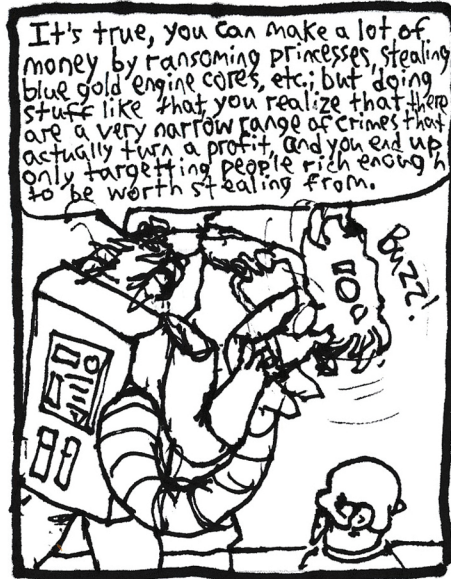 It's true, you can make a lot of
money by ransoming princesses, stealing
blue gold engine cores, etc.; but doing
stuff like that you realize that there
are a very narrow range of crimes that
actually turn a profit, and you end up
only targetting people rich enough
to be worth stealing from.
Buzz!